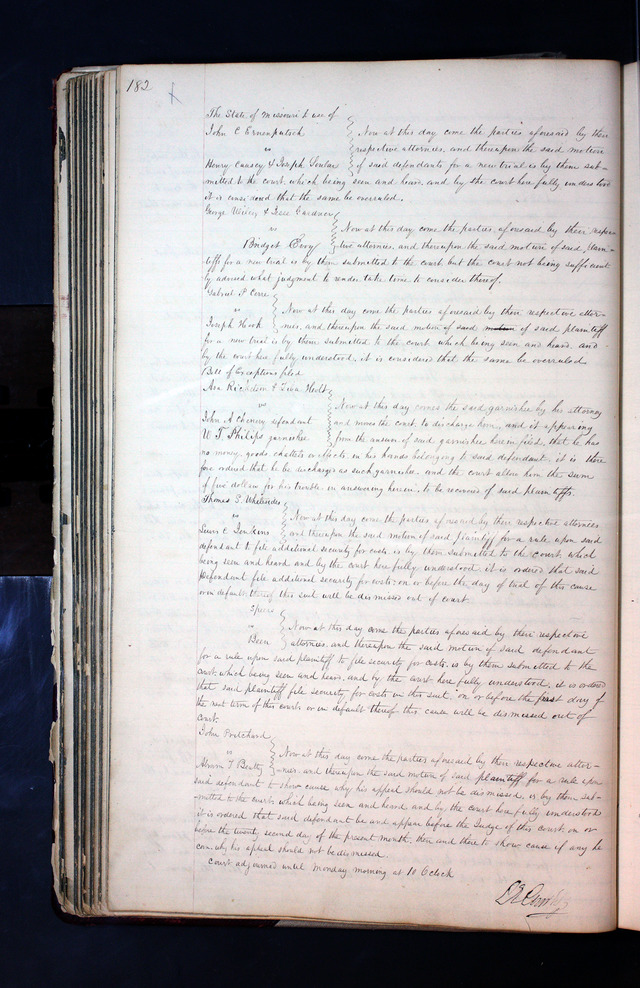 182
The State of Missouri to use of
John C Ernenputsch
vs
Henry Causey & Joseph
Now at this day come the parties aforesaid by their
respective attornies, and thereupon the said motion
of said defendants for a new trial is by them sub-
mitted to the court, which being seen and heard, and by the court here fully understood
it is considered that the same be overruled.
George & Jesse Gardner
vs
Bridget
Now at this day come the parties, aforesaid by their respec-
tive attornies, and thereupon the said motion of said plain-
tiffs for a new trial is by them submitted to the court but the court not being sufficient
ly advised what judgment to render take time to consider thereof.
Gabriel P Cerre
vs
Joseph Hook
Now at this day come the parties aforesaid by their respective attor-
nies, and thereupon the said motion of said motion of said plaintiff
for a new trial is by them submitted to the court which being seen and heard and
by the court here fully understood, it is considered that the same be overruled
Bill of Exceptions filed
Asa Richardson & Holt
vs
John A Chenery defendant
W T Philips garnishee
Now at this day comes the said garnishee by his attorney
and moves the court, to discharge him, and it appearing
from the answer of said garnishee herein filed, that he has
no money, goods chattels or effects in his hands belonging to said defendant, it is there
fore ordered that he be discharged as such garnishee and the court allow him the sum
of five dollars for his trouble in answering herein, to be recovered of said plaintiffs.
Thomas S.
vs
Lewis C Jenkins
Now at this day come the parties aforesaid by their respective attornies
and thereupon the said motion of said plaintiff for a rule upon said
defendant to file additional security for costs is by them submitted to the court which
being seen and heard and by the court here fully understood it is ordered that said
defendant file additional security for costs on or before the day of trial of this cause
or in default thereof this suit will be dismissed out of court
Speers
vs
Been
Now at this day come the parties aforesaid by their respective
attornies, and thereupon the said motion of said defendant
for a rule upon said plaintiff to file security for costs, is by them submitted to the
court, which being seen and heard, and by the court here fully understood, it is ordered
that said plaintiff file security for costs in this suit, on or before the first day of
the next term of this court or in default thereof this cause will be dismissed out of
court.
John Pritchard
vs
Abram F Beatty
Now at this day come the parties aforesaid by their respective attor-
-nies, and thereupon the said motion of said plaintiff for a rule upon
said defendant to show cause why his appeal should not be dismissed, is by them sub-
-mitted to the court, which being seen and heard and by the court here fully understood
it is ordered that said defendant be and appear before the Judge of this court on or
before the twenty second day of the present month, then and there to show cause if any he
can, why his appeal should not be dismissed.
Court adjourned until Monday morning at 10 OClock